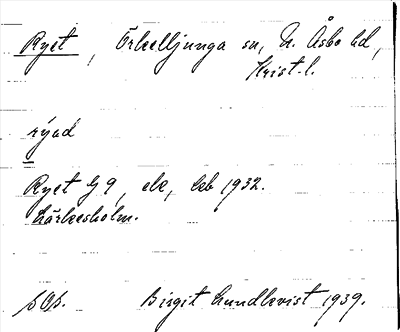 Ryet, Örkelljunga sn, N. Åsbo hd,
Krist. l.
rýad
Ryet G 9, ek, kb 1932.
Lärkesholm.
Birgit Lundkvist 1939.